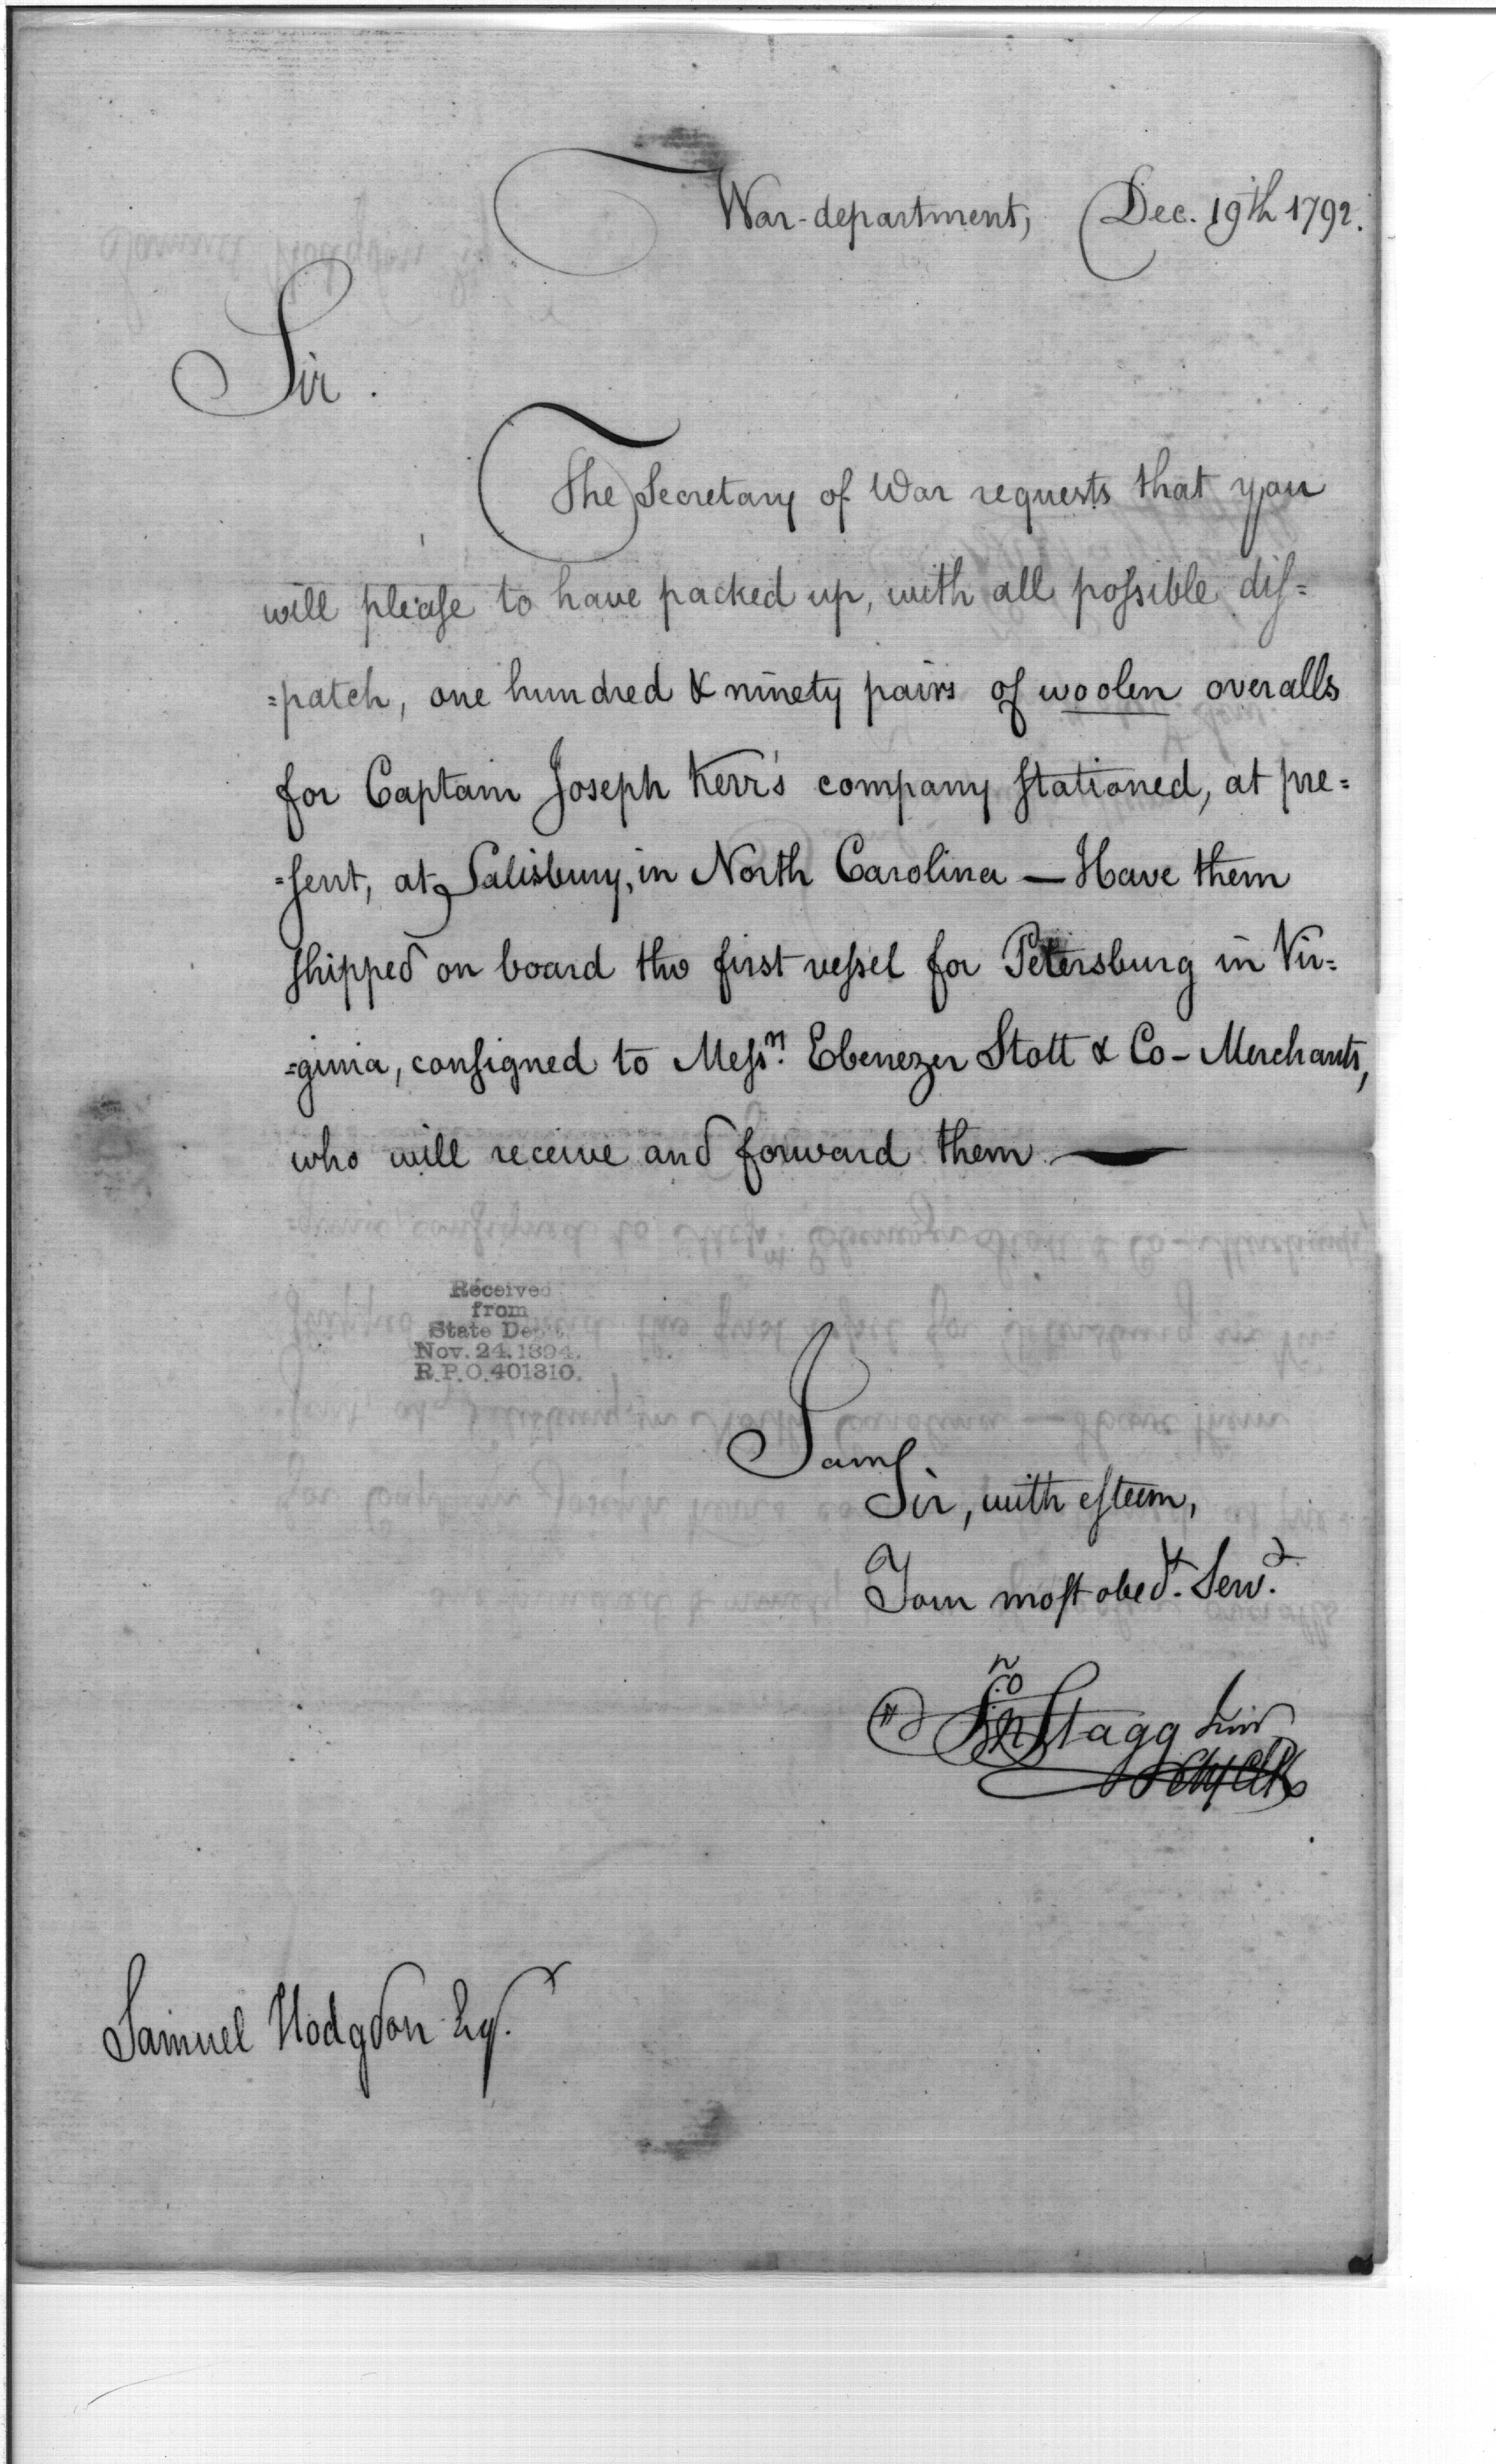 War-department, Dec. 19th 1792.
Sir.
The Secretary of War requests that you
will please to have packed up, with all possible dis=
=patch, one hundred & ninety pairs of woolen overalls
for Captain Joseph Kerr's company stationed, at pre=
=sent, at Salisbury, in North Carolina — Have them
shipped on board the first vessel for Petersburg in Vir=
=ginia, consigned to Messrs. Ebenezer Stott & Co - Merchants,
who will receive and forward them —
Received
from
State Dept.
Nov. 24. 1894.
R.P.O. 401310.
I am,
Sir, with esteem,
Your most obedt. Servt.
Jno Stagg Junr
Chf Clk
Samuel Hodgdon Esq.